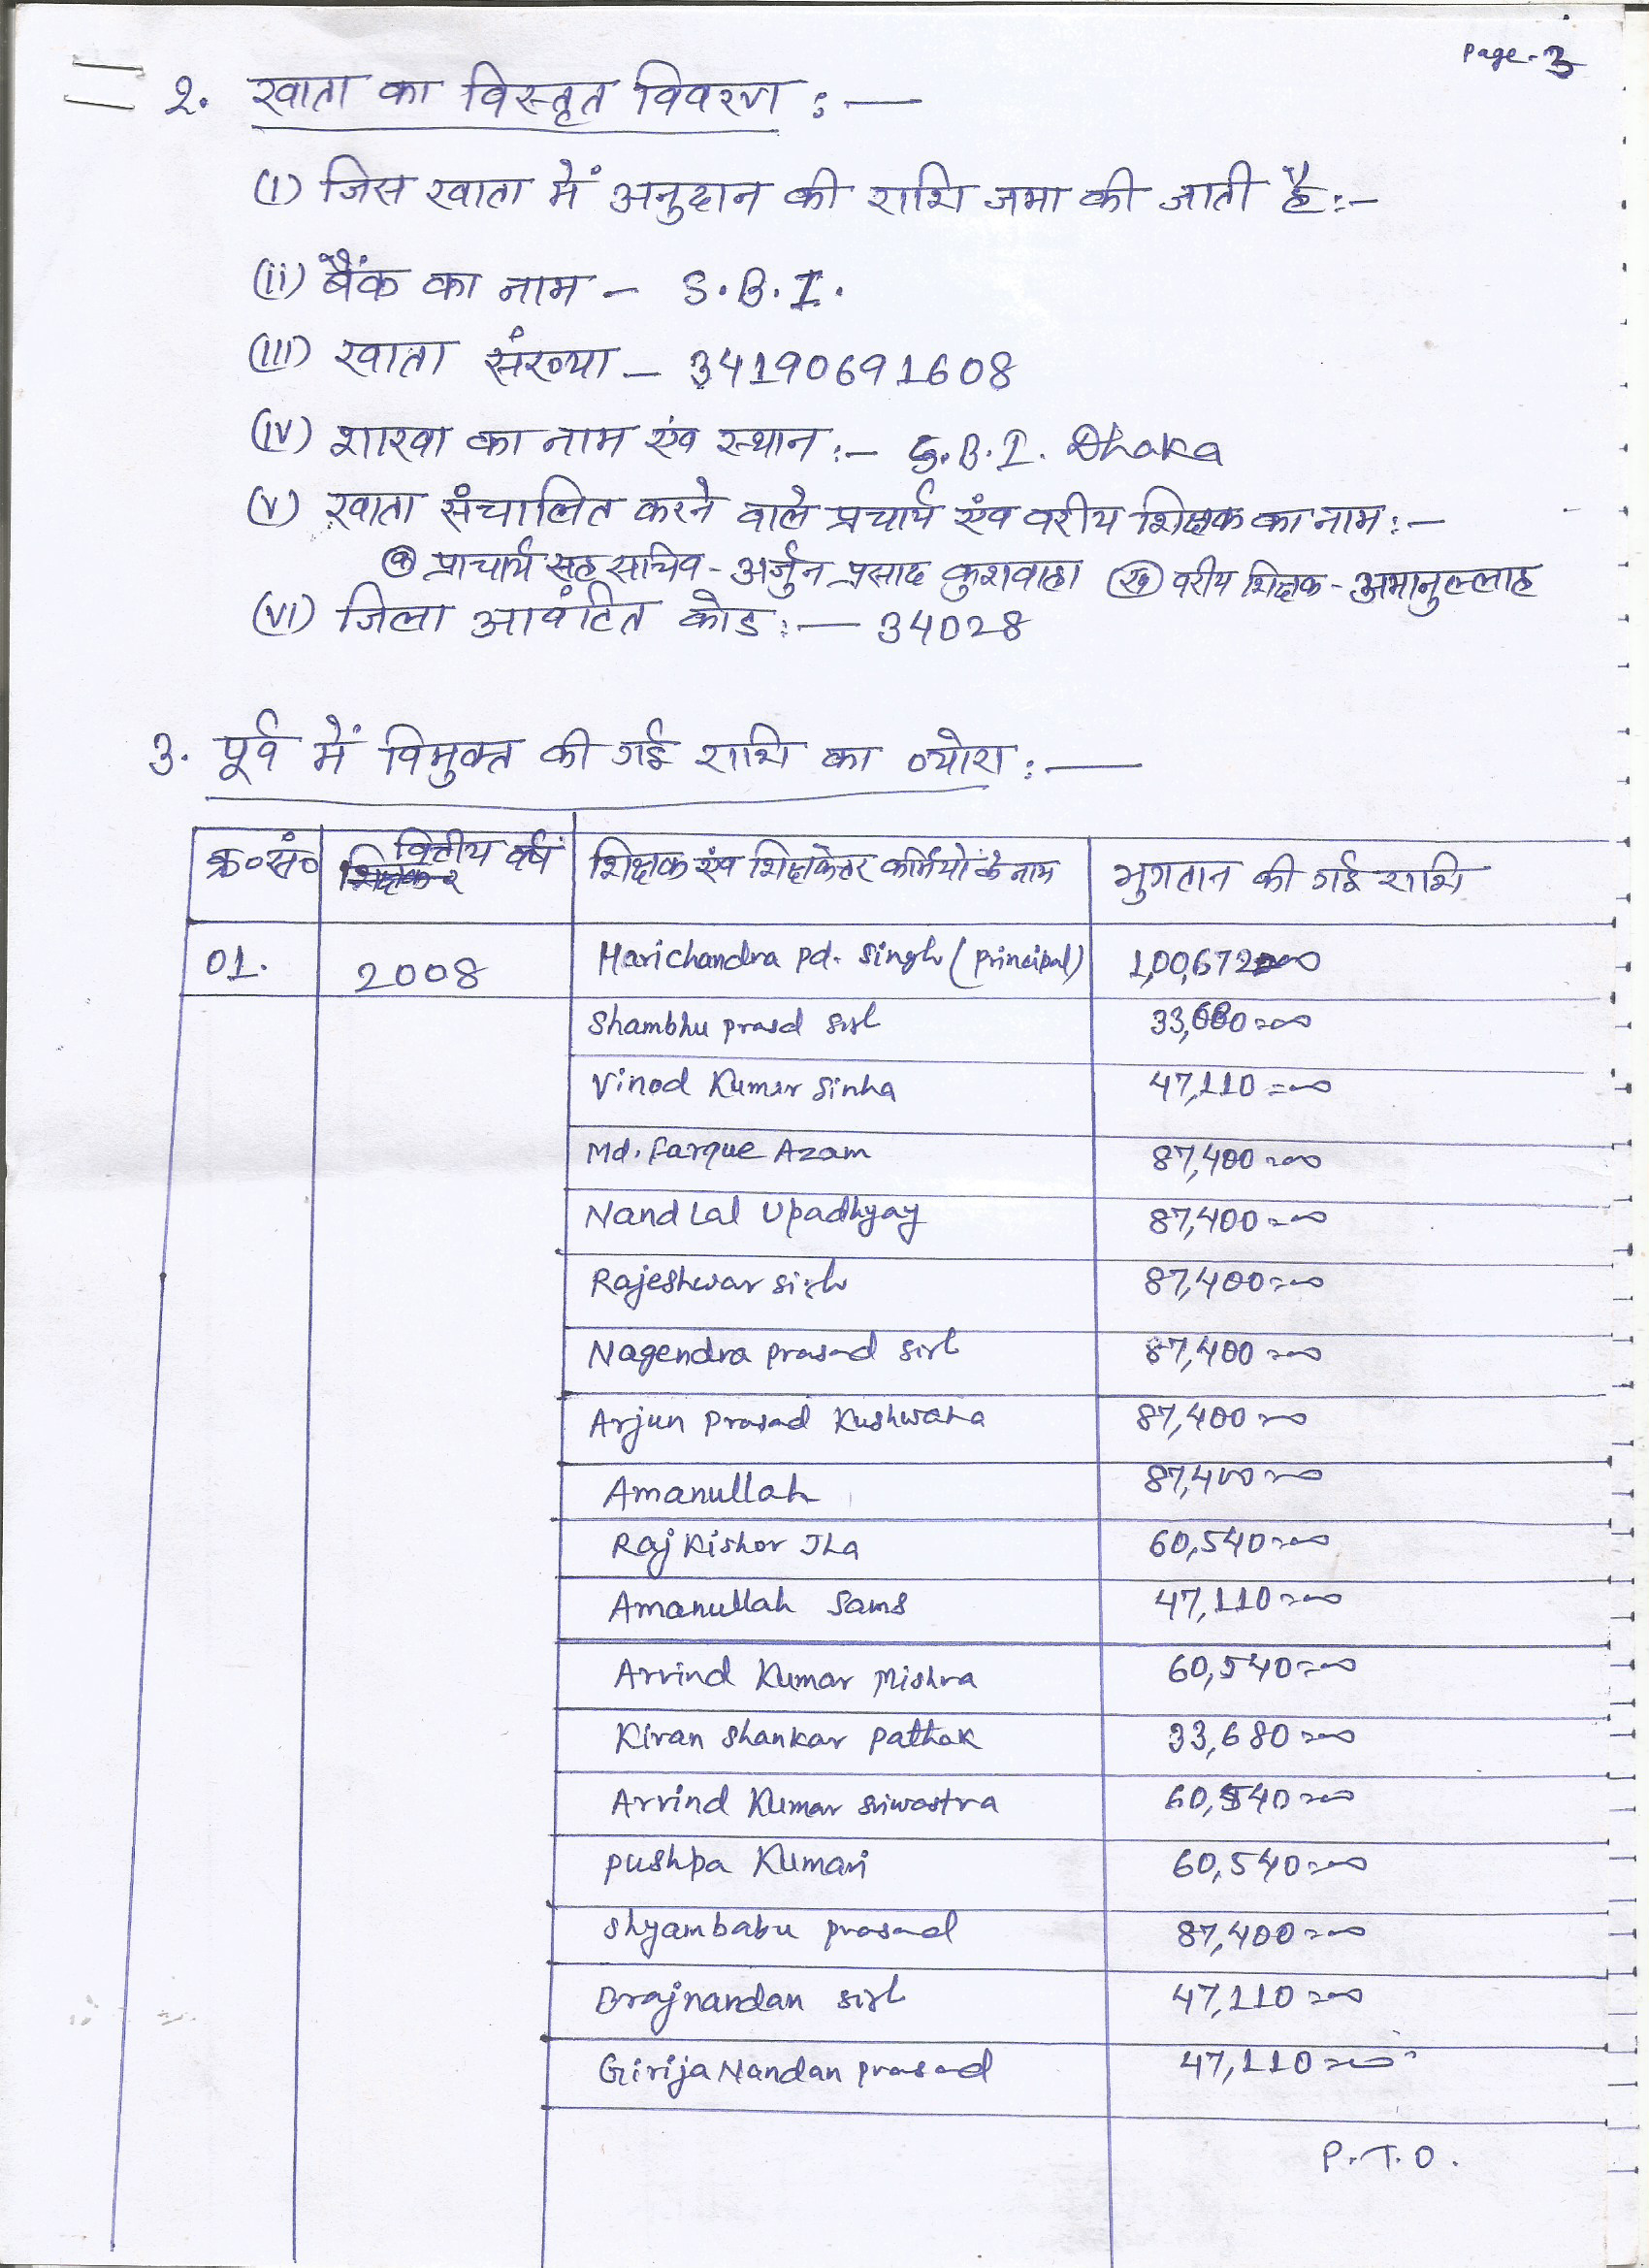 Page-3
2. खाता का विस्तृत विवरण :—
(i) जिस खाता में अनुदान की राशि जमा की जाती है:-
(ii) बैंक का नाम - S.B.I.
(iii) खाता संख्या - 34190691608
(iv) शाखा का नाम एंव स्थान :- S.B.I. Dhaka
(v) खाता संचालित करने वाले प्रचार्य एंव वरीय शिक्षक का नाम :-
(क) प्राचार्य सह सचिव - अर्जुन प्रसाद कुशवाहा (ख) वरीय शिक्षक - अमानुल्लाह
(vi) जिला आवंटित कोड :— 34028
3. पूर्व में विमुक्त की गई राशि का ब्योरा :—
क्र०सं० वित्तीय वर्ष शिक्षक एंव शिक्षकेत्तर कर्मियों के नाम भुगतान की गई राशि
01. 2008 Harichandra pd. Singh (principal) 1,00,672=00
Shambhu prasd 33,680=00
Vinod Kumar Sinha 47,110=00
Md. Farque Azam 87,400=00
Nand Lal Upadhyay 87,400=00
Rajeshwar 87,400=00
Nagendra prasad 87,400=00
Arjun prasad Kushwaha 87,400=00
Amanullah 87,400=00
Raj Kishor Jha 60,540=00
Amanullah Sams 47,110=00
Arvind Kumar Mishra 60,540=00
Kiran Shankar Pathak 33,680=00
Arvind Kumar Sriwastva 60,540=00
pushpa Kumari 60,540=00
Shyambabu prasad 87,400=00
Brajnandan 47,110=00
Girija Nandan prasad 47,110=00
P.T.O.